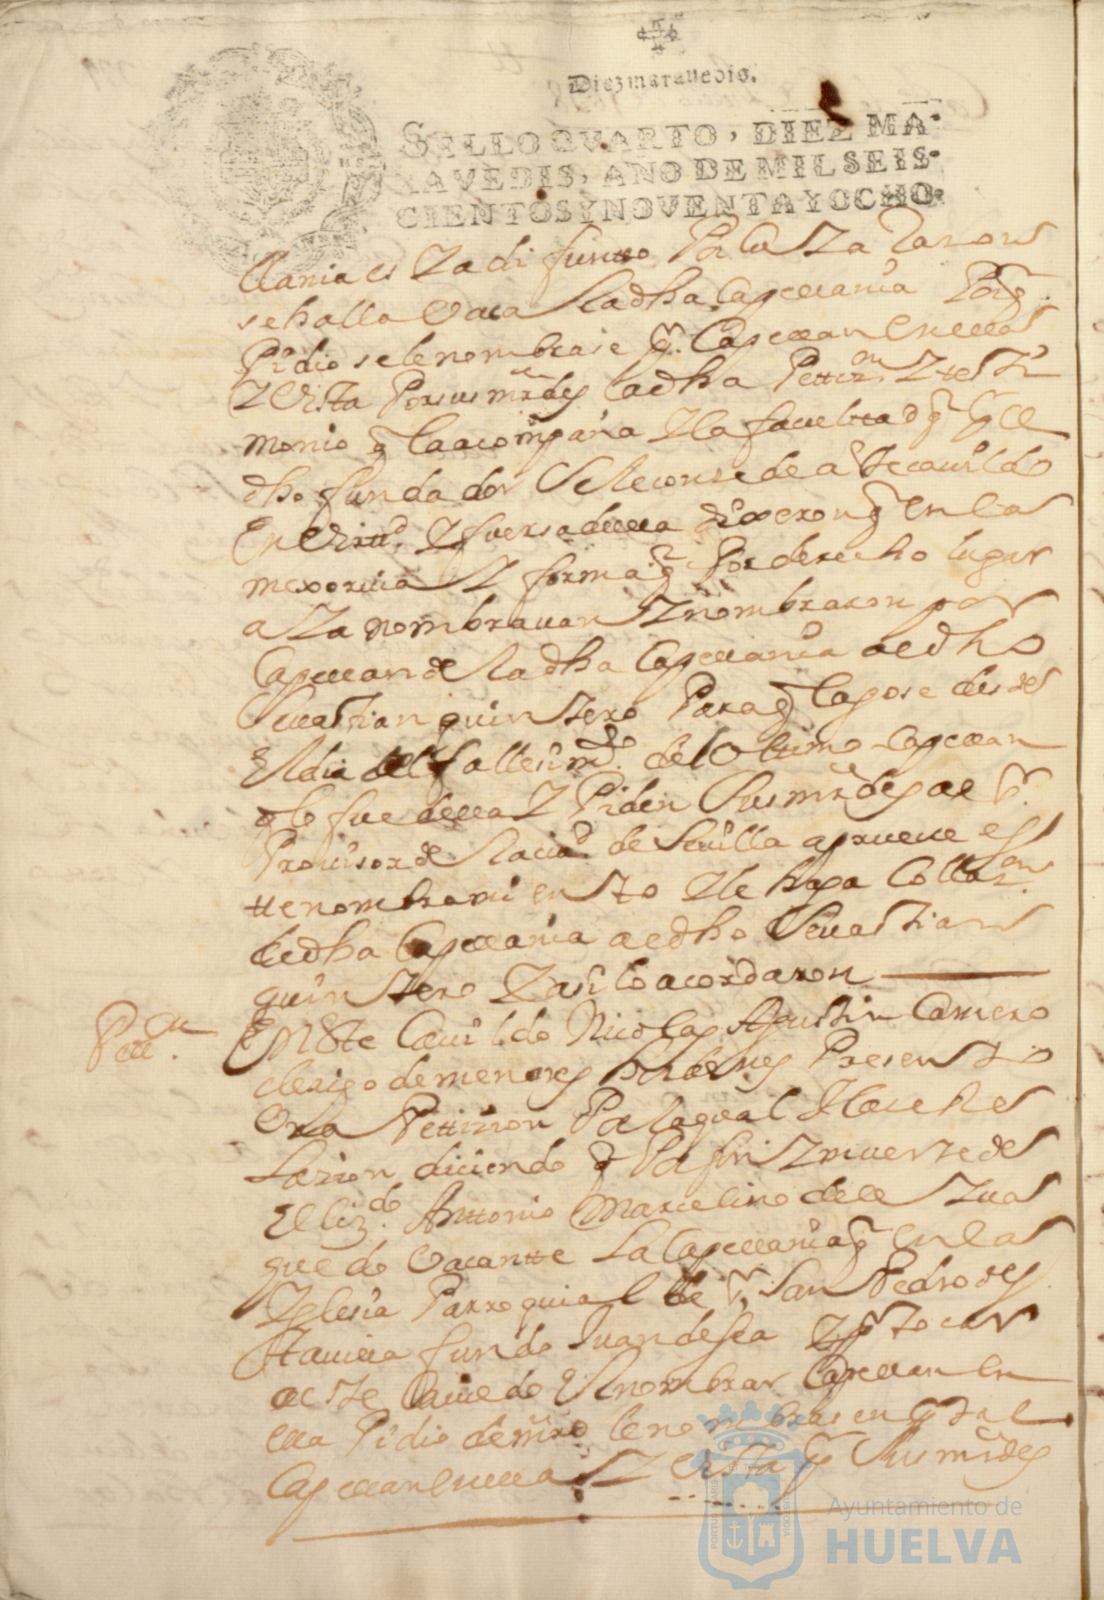 Diezmaravedis.
SELLO QVARTO, DIEZ MA-
RAVEDIS, AÑO DE MIL SEIS-
CIENTOS Y NOVENTA Y OCHO.
llania es ya difunto Por Cuya Razon
se halla Vaca la dha Capellania Porq
Pidio se le nombrase pr. Capellan en ella
Y Vista Por sus mrdes la dha Pettizon Y testi
monio q la acompaña Y la facultad q pr el
dho fundador Se le consede a este cavildo
En Virttd. Y fuersa de ella dixeron q en la
mexor via Y forma q Por derecho lugar
aya nombravan Y nombraron por
Capellan de la dha Capellania al dho
Sevastian quintero Para q la gose desde
El dia del fallesimto. del Ultimo Capellan
q lo fue de ella Y Piden Sus mrdes al Sr.
Provisor de la ciud de Sevilla aprueve es
tte nombramiento Y le haga Collazon
de dha Capellania al dho Sevastian
quintero Y asi lo acordaron
Petton.
En Este Cavildo Nicolas Agustin Camero
clerigo de menores hordenes Presento
Una Pettizion Por la qual Yso Re
lazion diciendo q Por fin Y muerte de
El lizdo. Anttonio Marcelino de
quedo Vacantte La Capellania q en la
Yglesia Parroquial de Sr. San Pedro de
esta villa fundo Juan de Y pr tocar
a este Cavildo El nombrar Capellan en
ella Pidio le nombrasen pr tal
Capellan en ella Y Vista pr Sus mrdes
Ayuntamiento de
HUELVA